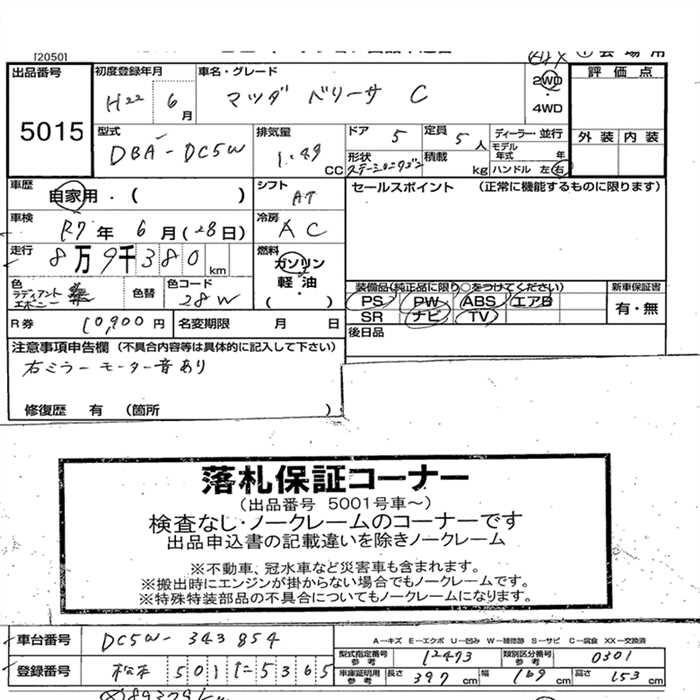 [2050]
出品番号
5015
初度登録年月
H22 6月
車名・グレード
マツダ ベリーサ C
2WD
・
4WD
評価点
外装 内装
型式
DBA-DC5W
排気量
1.49 CC
ドア 5
定員 5人
形状 ステーションワゴン
積載 kg
ディーラー・並行
モデル年式 年
ハンドル 左 右
車歴
自家用・( )
シフト
AT
セールスポイント (正常に機能するものに限ります)
車検
R7年 6月(28日)
冷房
AC
走行
8万9千380km
燃料
ガソリン
軽油
( )
色
ラディアント
エボニー
色替
色コード
28W
装備品(純正品に限り○をつけてください)
新車保証書
PS PW ABS エアB
有・無
SR ナビ TV
R券 10,900円
名変期限 月 日
後日品
注意事項申告欄 (不具合内容等は具体的に記入して下さい)
右ミラーモーター音あり
修復歴 有 (箇所 )
落札保証コーナー
(出品番号 5001号車～)
検査なし・ノークレームのコーナーです
出品申込書の記載違いを除きノークレーム
※不動車、冠水車など災害車も含まれます。
※搬出時にエンジンが掛からない場合でもノークレームです。
※特殊特装部品の不具合についてもノークレームになります。
車台番号
DC5W-343854
A－キズ E－エクボ U－凹み W－補修跡 S－サビ C－腐食 XX－交換済
型式指定番号
参考
12473
類別区分番号
参考
0301
登録番号
松本 501 に 5365
車庫証明用
参考
長さ 397cm
幅 169cm
高さ 153cm